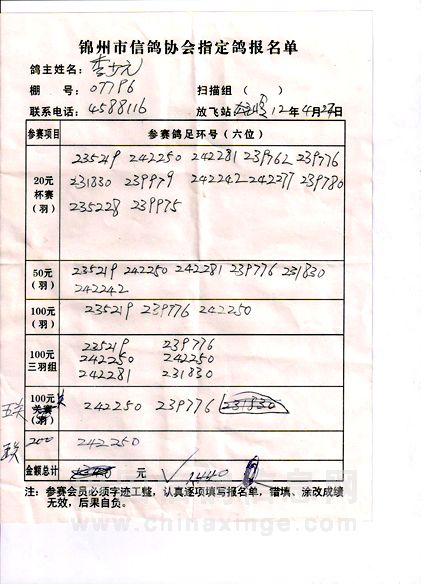 锦州市信鸽协会指定鸽报名单
鸽主姓名：李
棚　号：07796　扫描组（　）
联系电话：4588116　放飞站　12年4月27日
参赛项目　参赛鸽足环号（六位）
20元
杯赛
（羽）
235219 242250 242281 239762 239776
231830 239979 242242 242277 239780
235228 239975
50元
（羽）
235219 242250 242281 239776 231830
242242
100元
（羽）
235219 239776 242250
100元
三羽组
235219 239776
242250 242250
242281 231830
五关
100元
关赛
（羽）
242250 239776 231830
200 242250
金额总计　元 1440
注：参赛会员必须字迹工整，认真逐项填写报名单，错填、涂改成绩
无效，后果自负。
www.chinaxinge.com